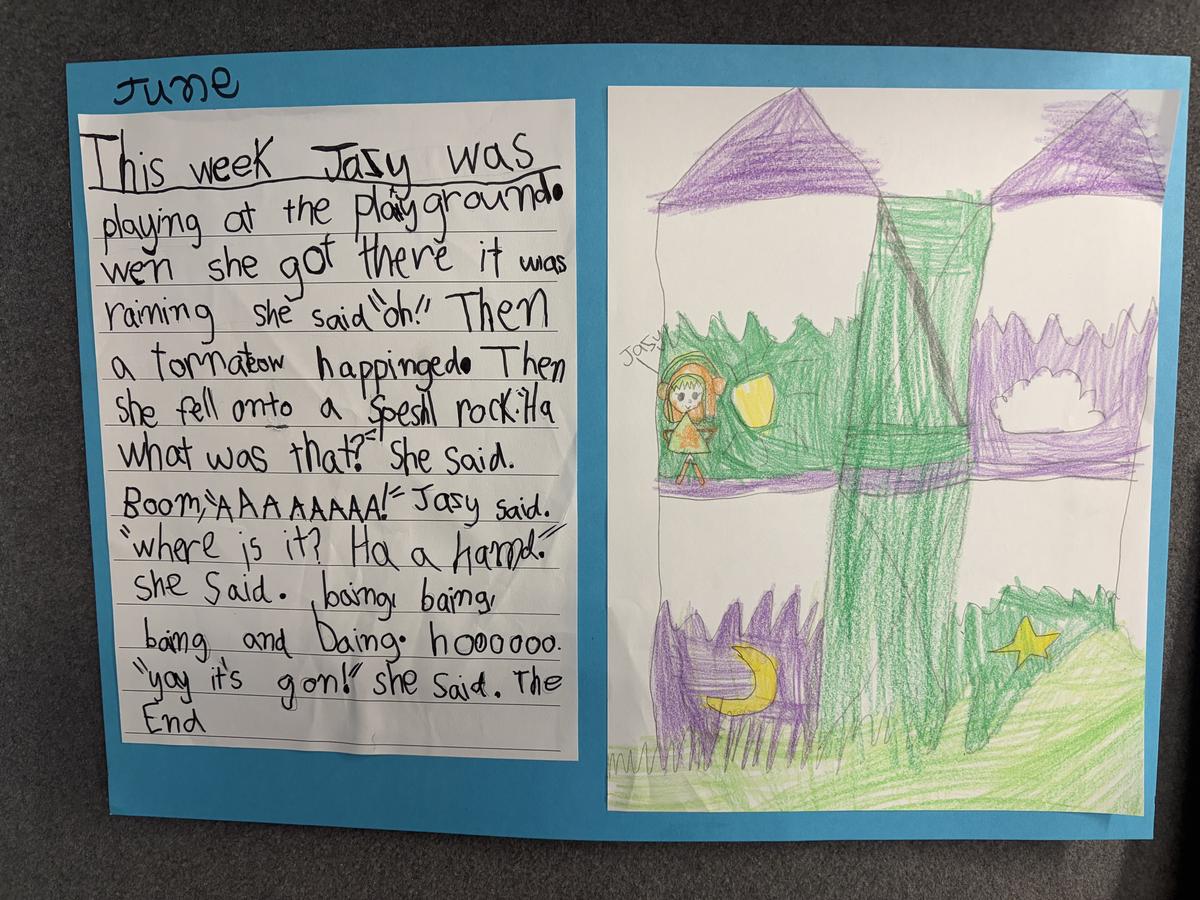 June
This week Jasy was
playing at the playground.
wen she got there it was
raining she said "oh!" Then
a tornatow happinged. Then
she fell onto a speshl rock. "Ha
what was that?" She said.
Boom, "AAAAAAAA!" Jasy said.
"where is it? Ha a hand."
she said. baing, baing,
baing and baing. hoooooo.
"yay it's gon!" she said. The
End
Jasy